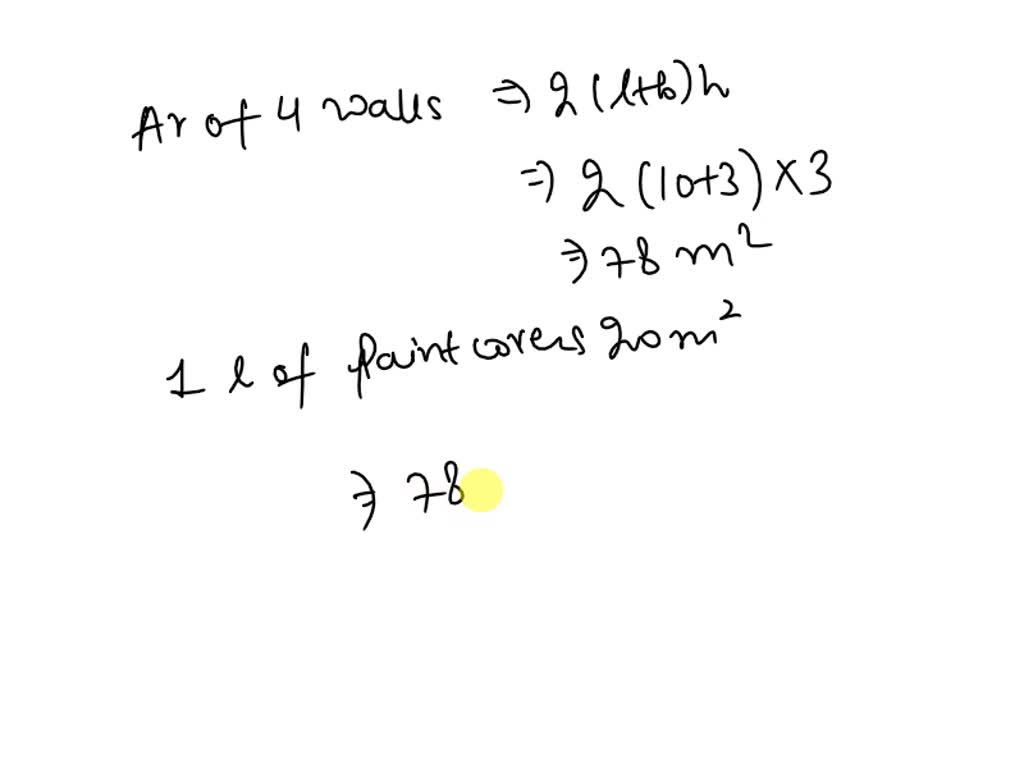 Ar of 4 walls ⇒ 2(l+b)h
⇒ 2(10+3)×3
⇒ 78 m²
1 l of paint covers 20m²
⇒ 78